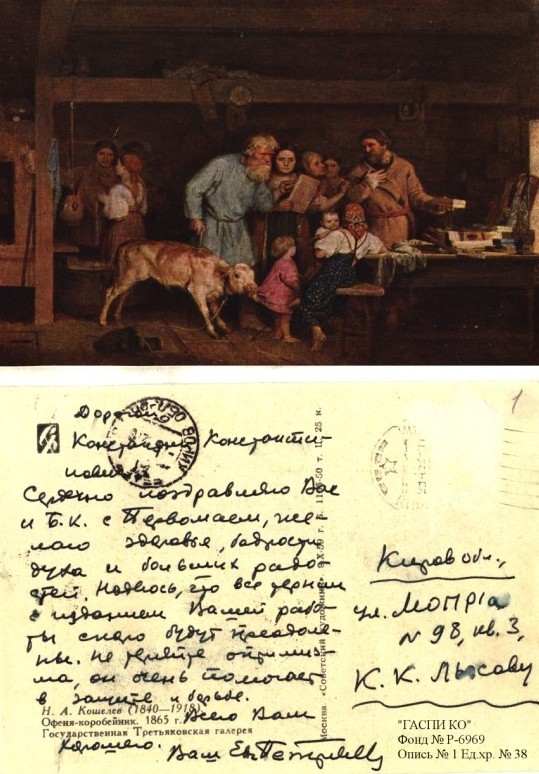 Дорогой
Константин Константи-
нович
Сердечно поздравляю Вас
и Б.К. с Первомаем, же-
лаю здоровья, бодрости
духа и больших радо-
стей. Надеюсь, что все тернии
с изданием Вашей рабо-
ты скоро будут преодоле-
ны. Не теряйте оптимиз-
ма, он очень помогает
в защите и борьбе.
Всего Вам
хорошего.
Ваш
Н. А. Кошелев (1840—1918)
Офеня-коробейник. 1865 г.
Государственная Третьяковская галерея
Москва. «Советский художник».
25 к.
1
СССР
Киров обл.,
ул. МОПРа
№ 98, кв. 3,
К. К. Лысову
"ГАСПИ КО"
Фонд № Р-6969
Опись № 1 Ед.хр. № 38